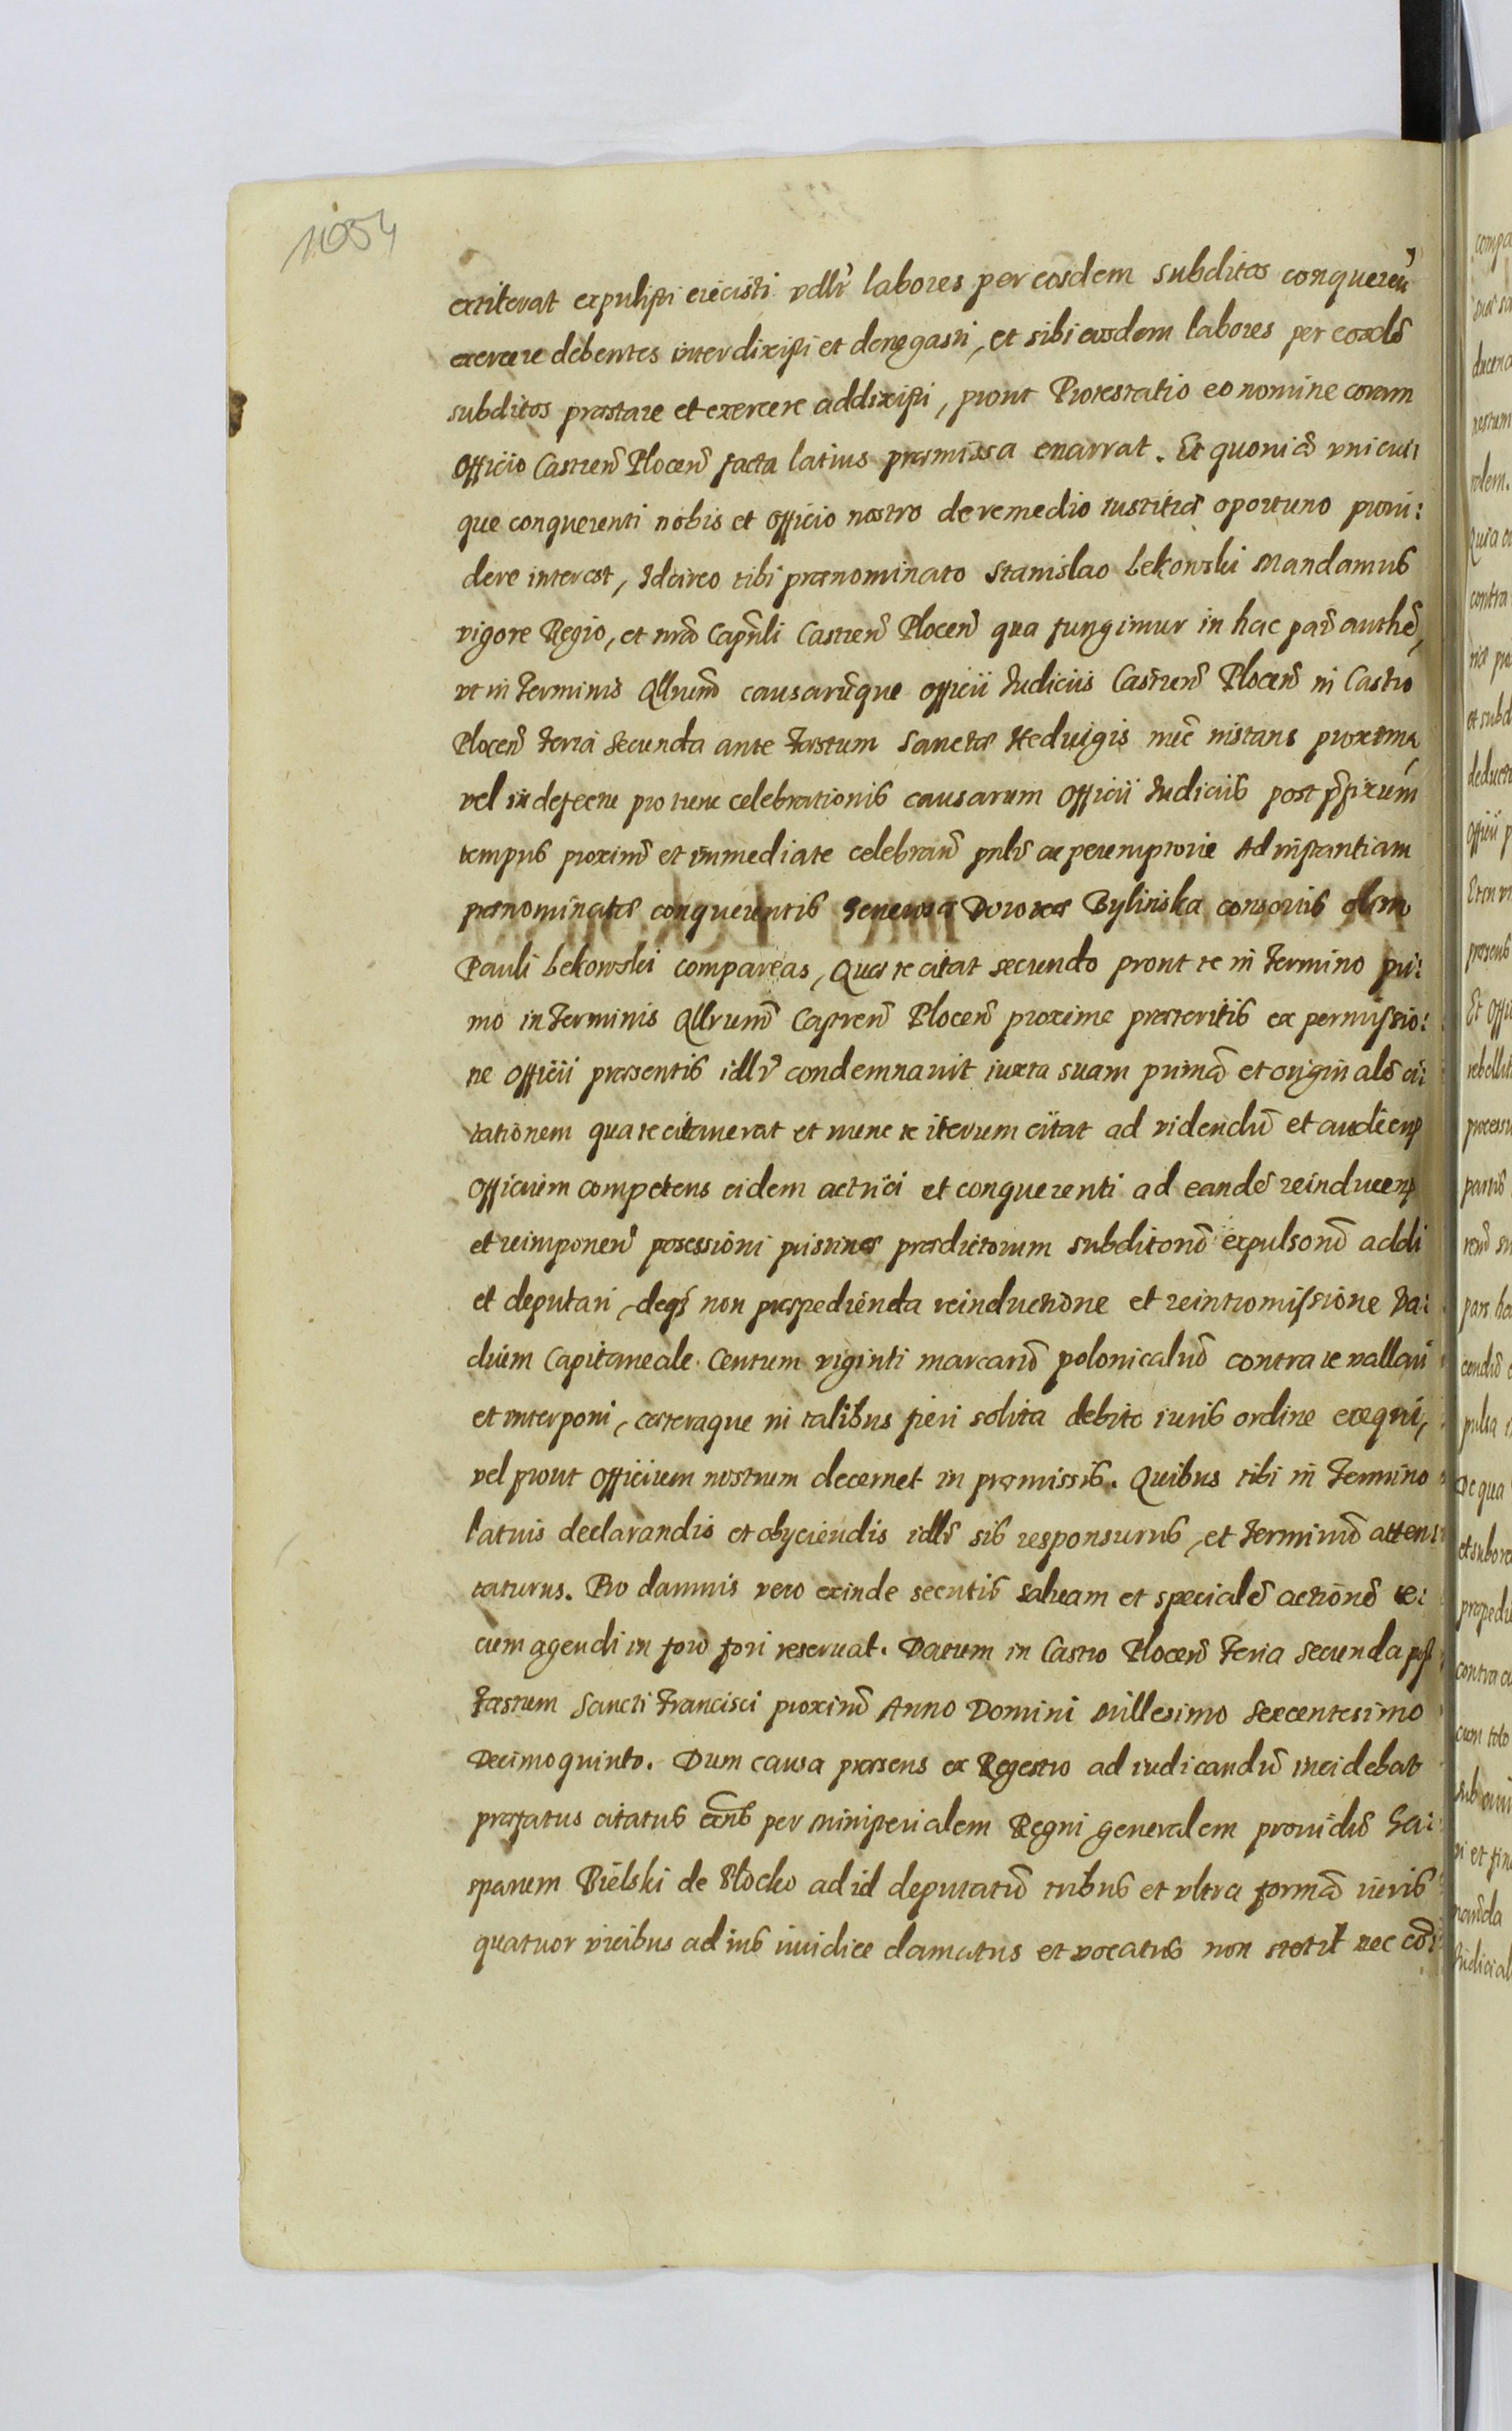 1054
extiterat expulisti eiecisti vdlr labores per eosdem subditos conqueren
exercere debentes interdixisti et denegasti, et sibi eosdem labores per eosdē
subditos præstare et exercere addixisti, prout Protestatio eo nomine coram
Officio Castren Plocen facta latius præmissa enarrat. Et quoniā vnicui
que conquerenti nobis et officio nostro de remedio iustitiæ oportuno proui:
dere interest, Idcirco tibi prænominato Stanislao Lekowski Mandamus
vigore Regio, et nrā Capnli Castren Plocen qua fungimur in hac par authē,
vt in Terminis Qllrum causarūque officii Iudiciis Castren Plocen in Castro
Plocen Feria Secunda ante Festum Sanctæ Heduigis nūc instans proxima
vel in defectu pro tunc celebrationis causarum Officii Iudiciis post pfixum
tempus proximē et immediate celebran pnlr ac peremptorie Ad instantiam
prænominatæ conquerentis Generosæ Doroteæ Bylinska consortis olim
Pauli Lekowski compareas, Quæ te citat secundo prout te in Termino pri:
mo in Terminis Qllrum Castren Plocen proxime præteritis ex permissio:
ne Officii præsentis idlr condemnauit iuxta suam primā et originalē ci:
tationem qua te citauerat et nunc te iterum citat ad videndū et audiend
Officium competens eidem actrici et conquerenti ad eandē reinducend
et reimponen possessioni pristinæ prædictorum subditorū expulsorū addi
et deputari, deqz non præpedienda reinductione et reintromissione Va:
dium Capitaneale Centum viginti marcarū polonicaliū contra te vallari
et interponi, cæteraque in talibus fieri solita debito iuris ordine exequi,
vel prout Officium nostrum decernet in præmissis. Quibus tibi in Termino
latius declarandis et obyciendis idlr sis responsurus, et terminū atten
taturus. Pro damnis vero exinde secutis saluam et specialē actionē te:
cum agendi in foro fori reseruat. Datum in Castro Plocen Feria Secunda post
Festum Sancti Francisci proximā Anno Domini Millesimo Sexcentesimo
Decimoquinto. Dum causa præsens ex Regestro ad iudicandū incidebat
præfatus citatus per Ministerialem Regni generalem prouidū Ga:
sparem Bielski de Plocko ad id deputatū tribus et vltra formā iuris
quatuor vicibus ad ius iuridice clamatus et vocatus non stetit nec cō